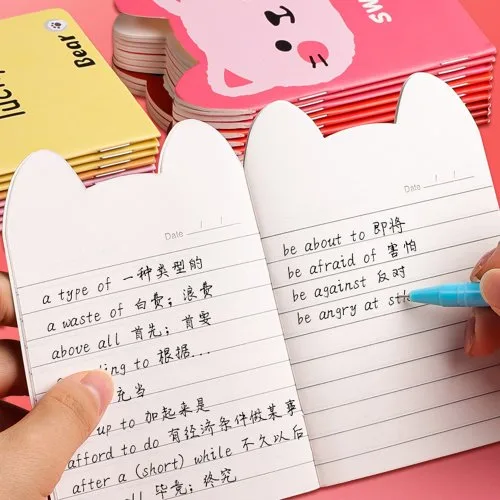 Bear
lucky
SW
Date / /
a type of 一种类型的
a waste of 白费；浪费
above all 首先；首要
to 根据...
充当
up to 加起来是
afford to do 有经济条件做某事
after a (short) while 不久以后
all 毕竟；终究
Date / /
be about to 即将
be afraid of 害怕
be against 反对
be angry at